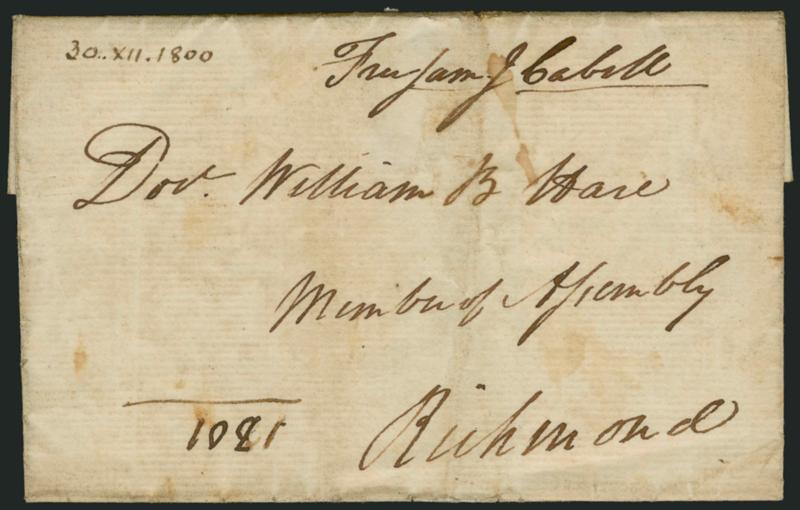 30.XII.1800
Free Sam J Cabell
Doct. William B Hare
Member of Assembly
Richmond